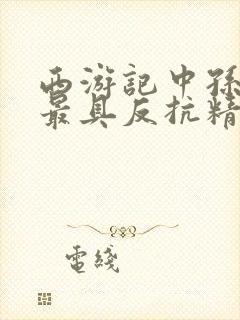 西游記中孫
最具反抗精
電綫